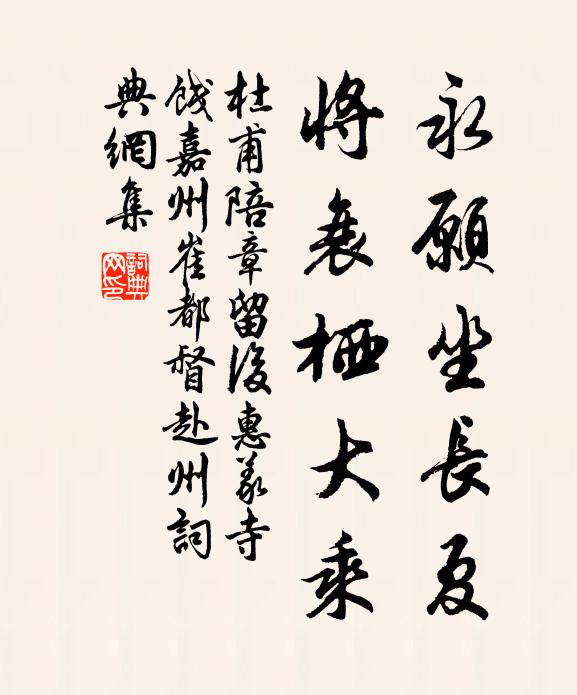 永願坐長夏
將衰栖大乘
杜甫陪章留後惠義寺
餞嘉州崔都督赴州詞
典網集
詞典网印